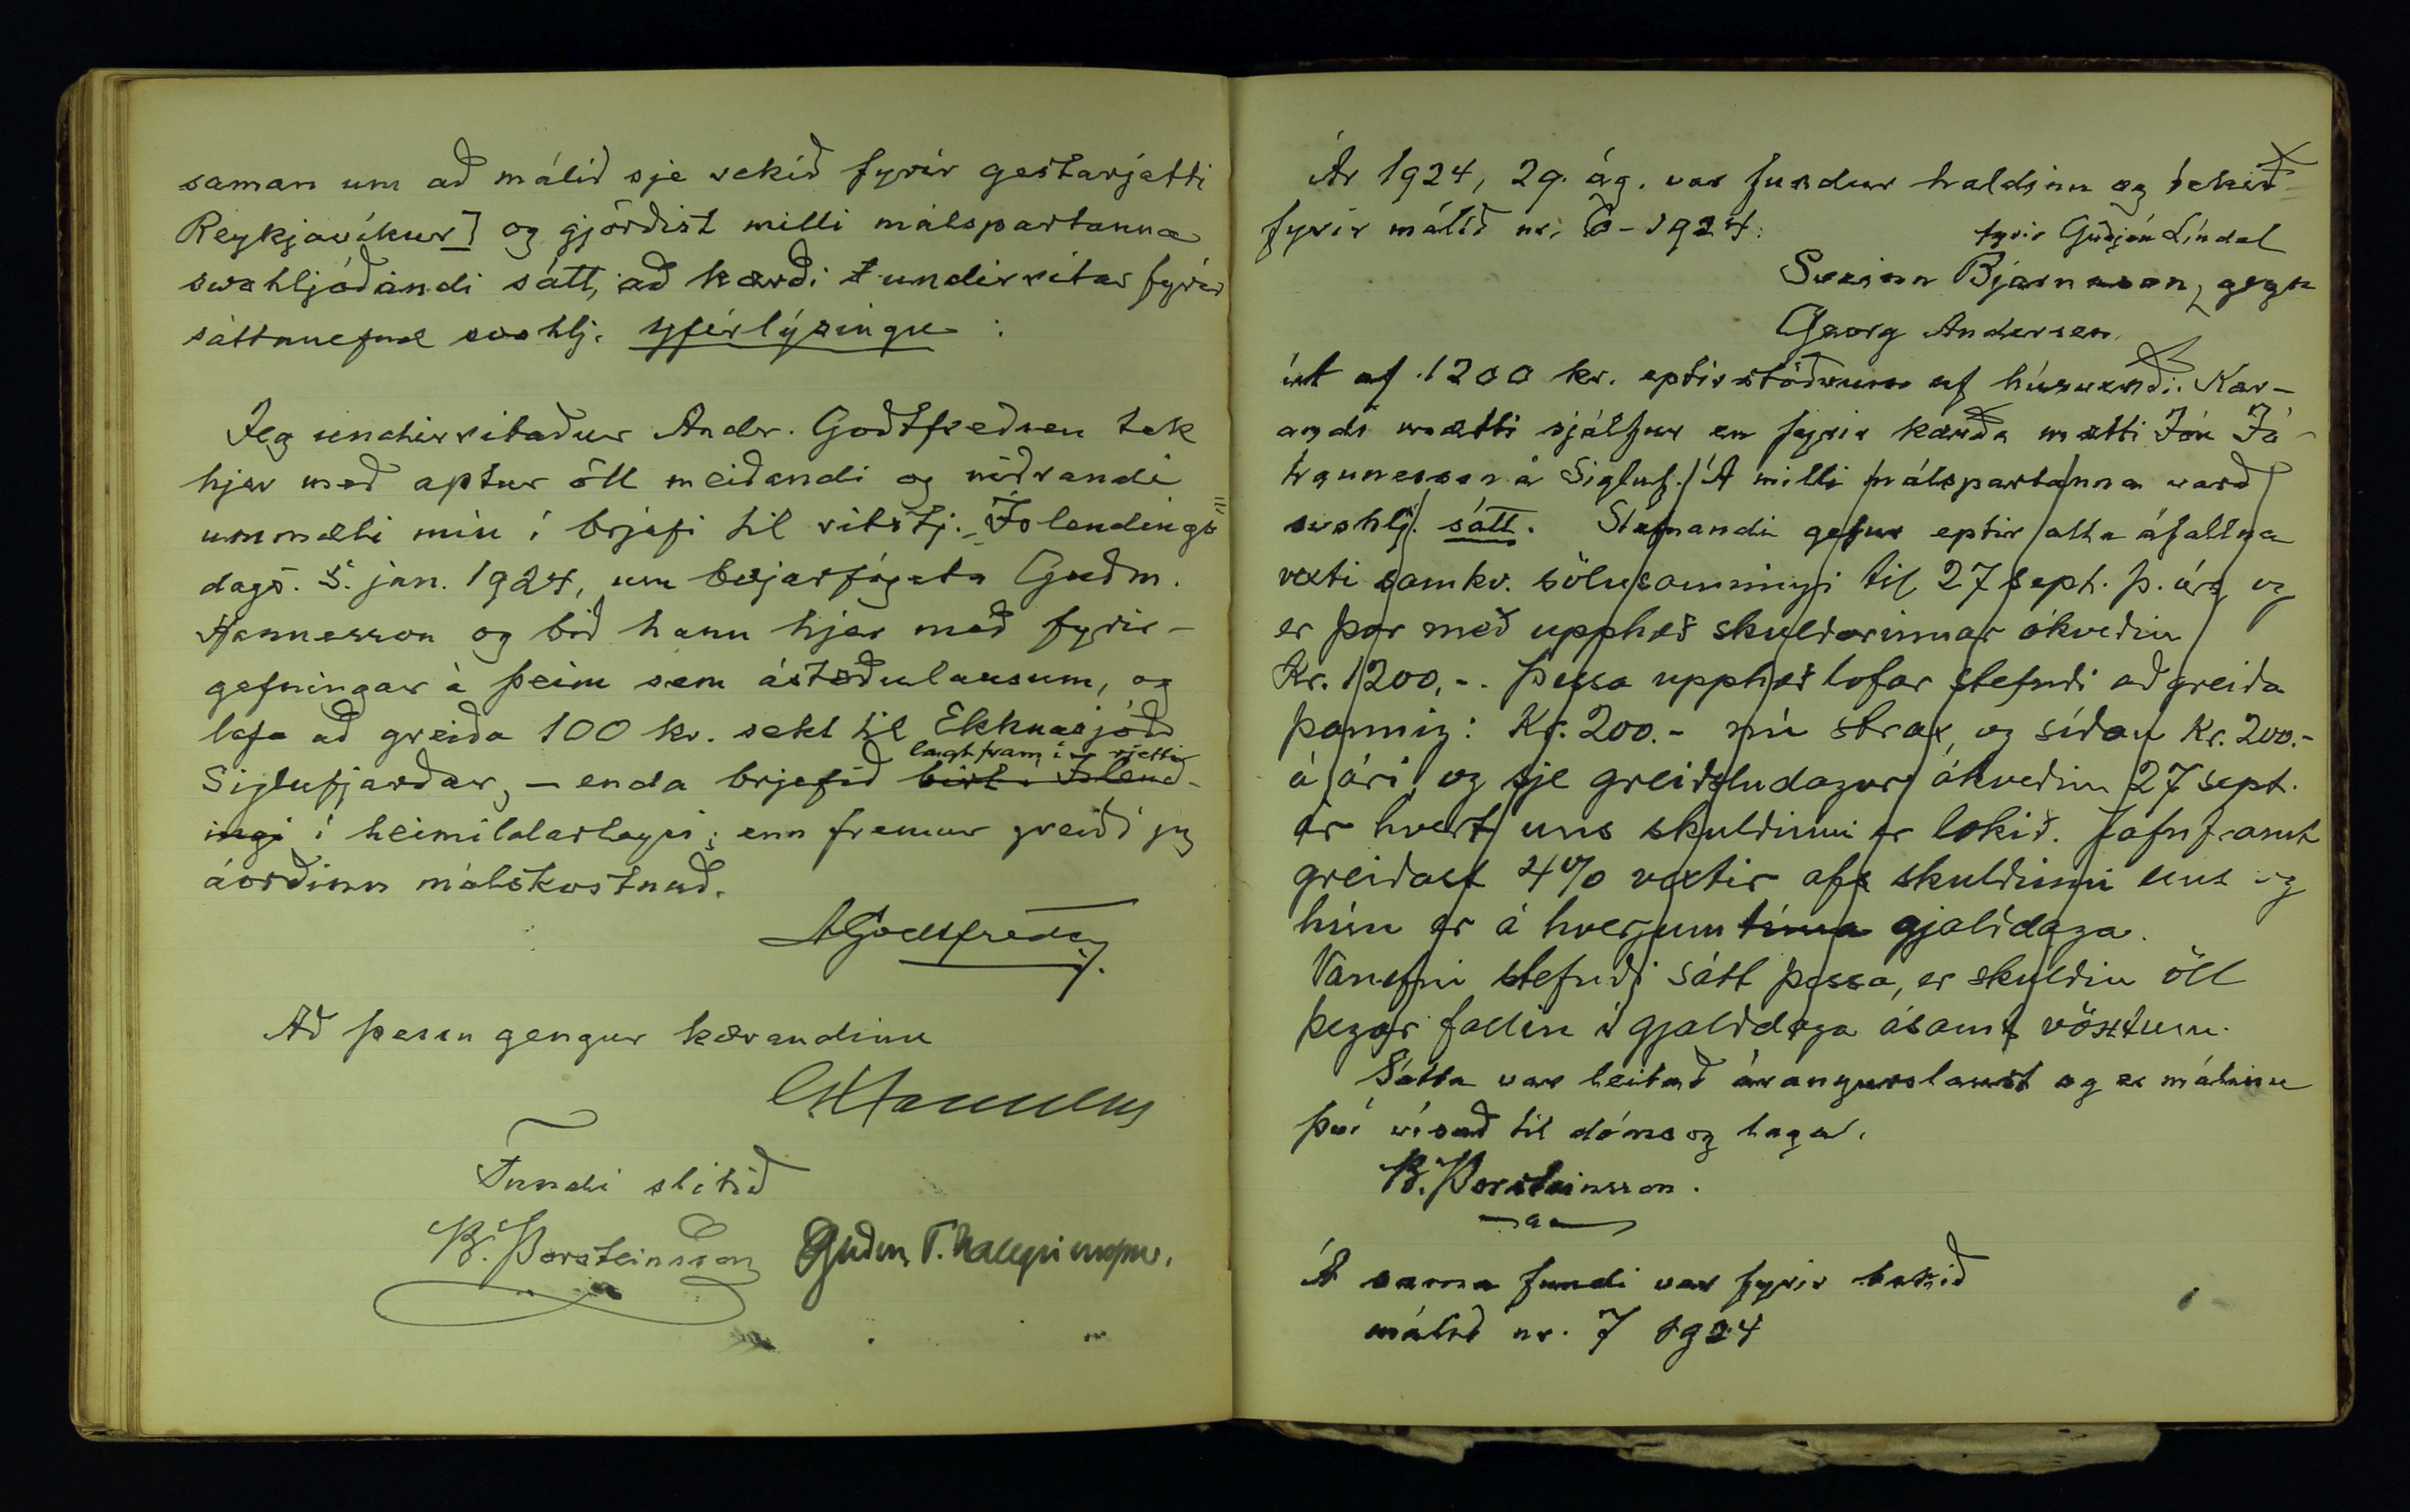 saman um að málið sje rekið fyrir gestarjetti
Reykjavíkur] og gjörðist milli málspartanna
svohljóðandi sátt, að kærði undirritar fyrir
sáttanefnd svohlj. yfirlýsingu :
Jeg undirritaður Andr. Goðtfredsen tek
hjer með aptur öll meiðandi og niðrandi
ummæli mín í brjefi til ritstj. Íslendings
dags. 5. jan. 1924, um bæjarfógeta Guðm.
Hannesson og bið hann hjer með fyrir-
gefningar á þeim sem ástæðulausum, og
lofa að greiða 100 kr. sekt til Ekknasjóðs
lagt fram í rjetti
Siglufjarðar, - enda brjefið birt í Íslend-
ingi í heimildarleysi; enn fremur greiði jeg
áorðinn málskostnað.
AGodtfredsen
Að þessu gengur kærandinn
GHannesson
Fundi slitið
B. Þorsteinsson Guðm. T. Hallgrímsson.
Ár 1924, 29. ág. var fundur haldinn og tekið
fyrir málið nr. 6-1924:
fyrir Guðjón Líndal
Sveinn Bjarnason, gegn
Georg Andersen
út af 1200 kr. eptirstöðvum af húsverði. Kær-
andi mætti sjálfur en fyrir kærða mætti Jón Jó-
hannesson á Sigluf. Á milli málspartanna varð
svohlj. sátt. Stefnandi gefur eptir alla áfallna
vexti samkv. sölusamningi til 27 sept. þ. árs og
er þar með upphæð skuldarinnar ákveðin
Kr. 1200,-. Þessa upphæð lofar stefndi að greiða
þannig: Kr. 200.- nú strax, og síðan Kr. 200.-
á ári, og sje greiðsludagur ákveðinn 27 sept.
ár hvert uns skuldinni er lokið. Jafnframt
greiðast 4% vextir af skuldinni eins og
hún er á hverjum tíma gjalddaga.
Vanefni stefndi sátt þessa, er skuldin öll
þegar fallin í gjalddaga ásamt vöxtum.
Sátta var leitað árangurslaust og er málinu
því vísað til dóms og laga.
B. Þorsteinsson.
Á sama fundi var fyrir tekið
málið nr. 7 1924